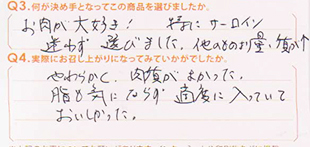 Q3.何が決め手となってこの商品を選びましたか。
お肉が大好き! 特にサーロイン
迷わず選びました。他のものお量、質が
Q4.実際にお召し上がりになってみていかがでしたか。
やわらかく、肉質がよかった。
脂も気にならず適度に入っていて
おいしかった。